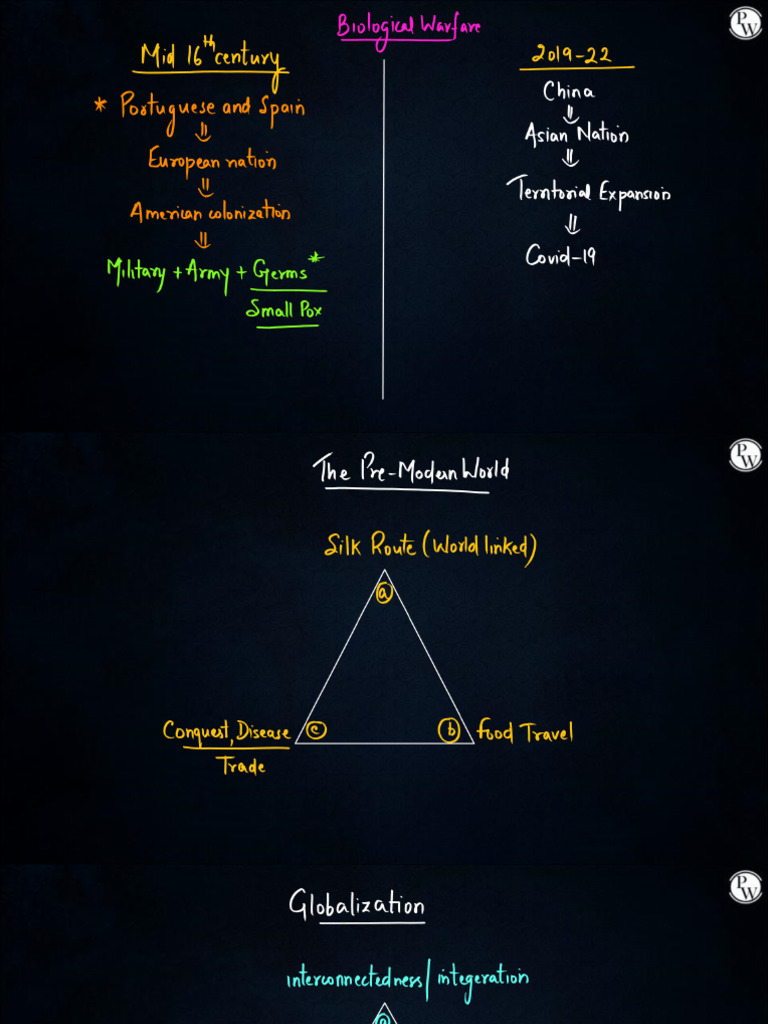 Biological Warfare
PW
Mid 16th century
2019-22
* Portuguese and Spain
China
⇓
⇓
European nation
Asian Nation
⇓
⇓
American colonization
Territorial Expansion
⇓
⇓
Military + Army + Germs*
Covid-19
Small Pox
PW
The Pre-Modern World
Silk Route (World linked)
a
Conquest, Disease
c
b
Food Travel
Trade
PW
Globalization
interconnectedness/integeration
a